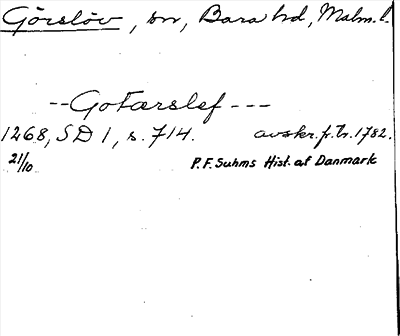 Görslöv, sn, Bara hd, Malm. l.
-- Gotærslef ---
1268, SD 1, s. 714. avskr. fr. tr. 1782.
21/10 P. F. Suhms Hist. af Danmark